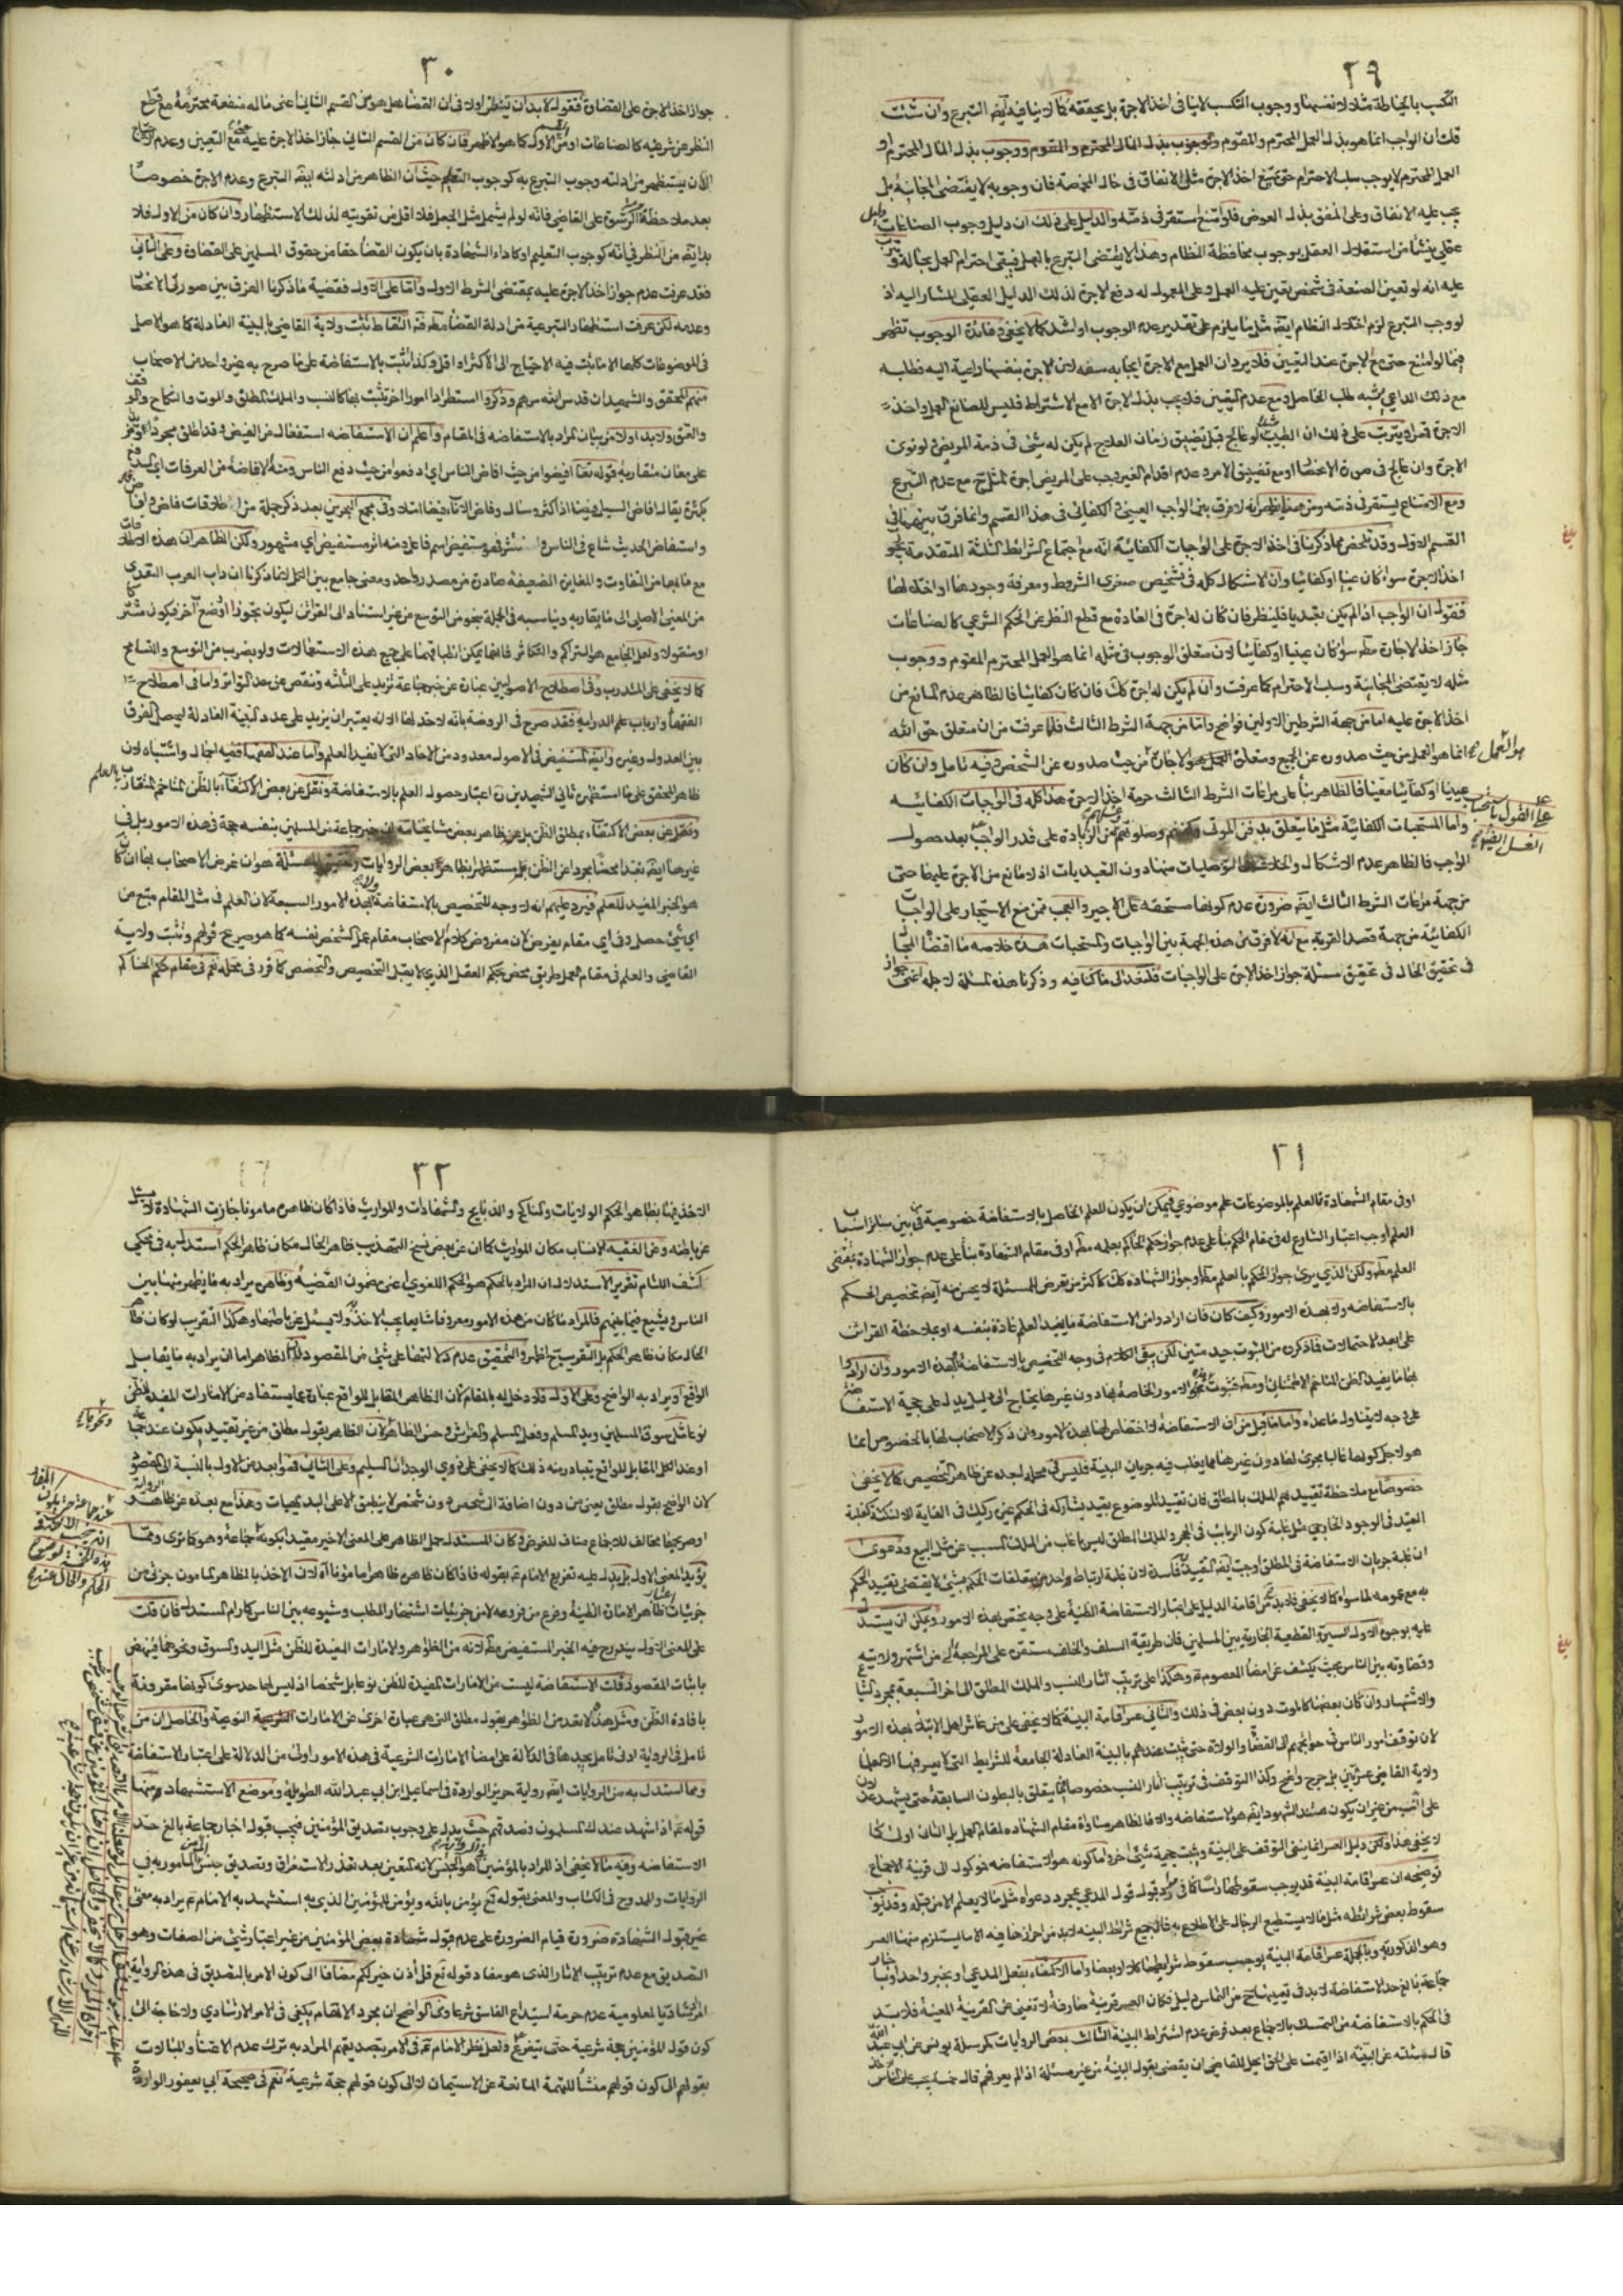 ٢٩
التكسب بالخياطة مثلا لا نفسها ووجوب التكسب لا ينافى اخذ الاجرة بل يحققه كما لا ينافيه ايضا التبرع وان شئت
قلت ان الواجب انما هو بذل العمل المحترم والمقوم ووجوب بذل المال المحترم والمقوم ووجوب بذل المال المحترم او
العمل المحترم لا يوجب سلب الاحترام حتى يمتنع اخذ الاجرة مثل الانفاق فى حال المخمصة فان وجوبه لا يقتضى المجانية بل
يجب عليه الانفاق وعلى المنفق بذل العوض فلو امتنع استقر فى ذمته والدليل على ذلك ان دليل وجوب الصناعات دليل
عقلى ينشأ من استقلال العقل بوجوب محافظة النظام وهذا لا يقتضى التبرع بالعمل فيبقى احترام العمل بحاله
عليه انه لو تعين الصنعة فى شخص تعين عليه العمل وعلى المعمول له دفع الاجرة لذلك الدليل العقلى المشار اليه اذ
لو وجب التبرع لزم اختلال النظام ايضا مثل ما يلزم على تقدير عدم الوجوب او اشد كما لا يخفى وفائدة الوجوب تظهر
فيما لو امتنع حتى مع الاجرة عند التعين فلا يرد ان العمل مع الاجرة ايجابه سفه لان الاجرة بنفسها داعية اليه فطلبه
مع ذلك الداعى يشبه طلب الحاصل ومع عدم التعيين فلا يجب بذل الاجرة الا مع الاشتراط فليس للصانع العمل واخذ
الاجرة قهرا ويترتب على ذلك ان الطبيب لو عالج قبل تضييق زمان العلاج لم يكن له شئ فى ذمة المريض ولو نوى
الاجرة وان عالج فى صورة الانحصار او مع تضييق الامر وعدم اقدام الغير وجب على المريض اجرة المثل مع عدم التبرع
ومع الامتناع يستقر فى ذمته ومن هنا يظهر انه لا فرق بين الواجب العينى والكفائى فى هذا القسم وانما فرق بينهما فى
القسم الاول وقد تلخص مما ذكرنا فى اخذ الاجرة على الواجبات الكفائية انه مع اجتماع الشرائط الثلثة المتقدمة يجوز
اخذ الاجرة سواء كان عينيا او كفائيا وان الاشكال كله فى تشخيص صغرى الشروط ومعرفة وجودها او اختلالها
فنقول ان الواجب اذا لم يكن تعبديا فلينظر فان كان له اجرة فى العادة مع قطع النظر عن الحكم الشرعى كالصناعات
جاز اخذ الاجارة مطلقا سواء كان عينيا او كفائيا لان متعلق الوجوب فى مثله انما هو العمل المحترم المقوم ووجوب
مثله لا يقتضى المجانية وسلب الاحترام كما عرفت وان لم يكن له اجرة كك فان كان كفائيا فالظاهر عدم المانع من
اخذ الاجرة عليه اما من جهة الشرطين الاولين فواضح واما من جهة الشرط الثالث فلما عرفت من ان متعلق حق الله
انما هو العمل من حيث صدوره عن الجميع ومتعلق الاجارة هو العمل من حيث صدوره عن الشخص وفيه تامل وان كان
عينيا او كفائيا معينا فالظاهر بناء على مراعات الشرط الثالث حرمة اخذ الاجرة هذا كله فى الواجبات الكفائيه
واما المستحبات الكفائية مثل ما يتعلق بدفن الموتى وصلوتهم من الزيادة على قدر الواجب بعد حصول
الواجب فالظاهر عدم الاشكال التوصليات منها دون التعبديات اذ لا مانع من الاجرة عليها حتى
من جهة مراعات الشرط الثالث ايضا ضرورة عدم كونها مستحقه على الاجير والعجب ممن منع الاستيجار على الواجبات
الكفائية من جهة قصد القربة مع انه لا فرق من هذه الجهة بين الواجبات والمستحبات هذه خلاصه ما اقتضاه المجال
فى تحقيق الحال فى تحقيق مسئلة جواز اخذ الاجرة على الواجبات فلنعد الى ما كنا فيه وذكرنا هذه المسئلة لاجله اعنى جواز
على القول باستحباب
٣٠
جواز اخذ الاجرة على القضاء فنقول لا بد ان ينظر اولا فى ان القضاء هل هو من القسم الثانى اعنى ما له منفعة محترمة مع قطع
النظر عن شرعيته كالصناعات او من القسم الاول كما هو الاظهر فان كان من القسم الثانى جاز اخذ الاجرة عليه حتى مع التعين وعدم الاحتياج
الا ان يستظهر من ادلته وجوب التبرع به كوجوب التعليم حيث ان الظاهر من ادلته ايضا التبرع وعدم الاجرة خصوصا
بعد ملاحظة حرمة الرشوة على القاضى فانه لو لم يشمل مثل الجعل فلا اقل من تقويته لذلك الاستظهار وان كان من الاول فلا
بد ايضا من النظر فى انه كوجوب التعليم او كاداء الشهادة بان يكون القضاء حقا من حقوق المسلمين على القضاة وعلى الثانى
فقد عرفت عدم جواز اخذ الاجرة عليه بمقتضى الشرط الاول واما على الاول فقضية ما ذكرنا الفرق بين صورتى الانحصار
وعدمه لكن عرفت استظهار التبرعية من ادلة القضاء مطلقا التقاط تثبت ولاية القاضى بالبينة العادلة كما هو الاصل
فى الموضوعات كلها الا ما ثبت فيه الاحتياج الى الاكثر او اقل وكذا تثبت بالاستفاضة على ما صرح به غير واحد من الاصحاب
منهم المحقق والشهيدان قدس الله سرهم وذكروا استطرادا امورا اخر تثبت بها كالنسب والملك المطلق والموت والنكاح والوقف
والعتق ولا بد اولا من بيان المراد بالاستفاضه فى المقام واعلم ان الاستفاضه استفعال من الفيض وقد اطلق مجردا
على معان متقاربة قوله تعالى افيضوا من حيث افاض الناس اى ادفعوا من حيث دفع الناس ومنه الافاضة من العرفات اى الدفع
بكثرة يقال افاض السيل فيضا اذا كثر وسال وفاض الاناء فيضا امتلا وفى مجمع البحرين بعد ذكر جملة من اطلاقات فاض وافاض
واستفاض الحديث شاع فى الناس وانتشر فهو مستفيض اسم فاعل ومنه اثر مستفيض اى مشهور ولكن الظاهر ان هذه الاطلاقات
مع ما بها من التفاوت والمغايرة الضعيفة صادرة من مصدر واحد ومعنى جامع بين الكل لما ذكرنا ان داب العرب التعدى
من المعنى الاصلى الى ما يقاربه ويناسبه فى الجملة بنحو من التوسع من غير استناد الى القرائن ليكون تجوزا او وضع اخر فيكون مشتركا
او منقولا ولعل الجامع هو التراكم والتكاثر فانهما يمكن انطباقهما على جميع هذه الاستعمالات ولو بضرب من التوسع والتسامح
كما لا يخفى على المتدرب وفى اصطلاح الاصوليين عبارة عن خبر جماعة تزيد على الثلثة وتنقص عن حد التواتر واما فى اصطلاح
الفقهاء وارباب علم الدراية فقد صرح فى الروضة بانه لا حد لها الا انه يعتبر ان يزيد على عدد البينة العادلة ليحصل الفرق
بين العدول وغيره وايضا المستفيض فى الاصول معدود من الاحاد التى لا تفيد العلم واما عند الفقهاء ففيه اجمال واشتباه لان
ظاهر المحقق على ما استظهره ثانى الشهيدين اعتبار حصول العلم بالاستفاضة ونقل عن بعض الاكتفاء بالظن المتاخم المتقارب بالعلم
ونقل عن بعض الاكتفاء بمطلق الظن بل عن ظاهر بعض مشايخنا انه خبر جماعة من المسلمين بنفسه حجة فى هذه الامور بل فى
غيرها ايضا تعبدا محضا مجردا عن الظن بل مستظهرا بظاهر بعض الروايات وتحقيق المسئلة هو ان غرض الاصحاب بها ان كان
هو الخبر المفيد للعلم فيرد عليهم انه لا وجه للتخصيص بالاستفاضة ولا بهذه الامور السبعة لان العلم فى مثل المقام متبع من
اى شئ حصل وفى اى مقام يفرض لان مفروض كلام الاصحاب مقام عمل الشخص نفسه كما هو صريح قولهم وتثبت ولاية
القاضى والعلم فى مقام العمل طريق محض بحكم العقل الذى لا يقبل التخصيص والتخصص كما قرر فى محله نعم فى مقام حكم الحاكم
٣١
او فى مقام الشهادة فالعلم بالموضوعات علم موضوعى فيمكن ان يكون للعلم الحاصل بالاستفاضة خصوصية من بين سائر اسباب
العلم اوجب اعتبار الشارع له فى مقام الحكم بناء على عدم جواز حكم الحاكم بعلمه مطلقا او فى مقام الشهادة بناء على عدم جواز الشهادة بمقتضى
العلم مطلقا ولكن الذى يرى جواز الحكم بالعلم مطلقا وجواز الشهادة كك كاكثر من تعرض للمسئلة لا يحسن منه ايضا تخصيص الحكم
بالاستفاضه ولا بهذه الامور وكيف كان فان ارادوا من الاستفاضة ما يفيد العلم عادة بنفسه او بملاحظة القرائن
على ابعد الاحتمالات فما ذكروه من الثبوت جيد متين لكن يبقى الكلام فى وجه التخصيص بالاستفاضة وبهذه الامور وان ارادوا
بها ما يفيد الظن المتاخم الاطمينانى ومطلقا فثبوت هذه الامور الخاصة بها دون غيرها يحتاج الى دليل يدل على حجية الاستفاضة
على وجه لا يتناول ما عداه واما ما قيل من ان الاستفاضة لا اختصاص لها بهذه الامور وان ذكر الاصحاب لها بالخصوص انما
هو لاجل كونها غالبا مجرى لها دون غيرها مما يغلب فيه جريان البينة فليس فى محله لبعده عن ظاهر التخصيص كما لا يخفى
خصوصا مع ملاحظة تقييدهم الملك بالمطلق فان تقييد الموضوع بقيد يشاركه فى الحكم غيره ركيك فى الغاية الا لنكتة كغلبة
القيد فى الوجود الخارجى مثل غلبة كون الربائب فى الحجر والملك المطلق ليس باغلب من الملك المسبب عن مثل البيع ودعوى
ان غلبة جريان الاستفاضة فى المطلق اوجبت التقييد به فاسدة لان غلبة ارتباط واحد من متعلقات الحكم بشئ لا يقتضى تقييد الحكم
به مع عمومه لما سواه كما لا يخفى فلا بد من اقامة الدليل على اعتبار الاستفاضة الظنية على وجه يختص بهذه الامور ويمكن ان يستدل
عليه بوجوه الاول السيرة القطعية الجارية بين المسلمين فان طريقة السلف والخلف مستقرة على المراجعة الى من اشتهر ولايته
وقضاوته بين الناس بحيث يكشف عن امضاء المعصوم وهكذا على ترتيب اثار النسب والملك المطلق الى اخر السبعة بمجرد الشياع
والاشتهار وان كان بعضها كالموت دون بعض فى ذلك والثانى عسر اقامة البينة كما لا يخفى على من عاشر اهل الابتلاء بهذه الامور
لان توقف امور الناس فى حوائجهم الى القضاة والولاة حتى تثبت عندهم بالبينة العادلة الجامعة للشرائط التى لا يعرفها الا العلماء
ولاية القاضى عسر بين بل حرج واضح وكذا التوقف فى ترتيب اثار النسب خصوصا فيما يتعلق بالبطون السابقة حتى يشهد عدلان
على النسب من غير ان يكون مستند الشهود ايضا هو الاستفاضه والا فالظاهر مساواة مقام الشهاده لمقام العمل بل الثانى اولى كما
لا يخفى هذا ولكن دليل العسر انما ينفى التوقف على البينة ويثبت حجية شئ اخر واما كونه هو الاستفاضه فموكول الى قرينة الاجماع
توضيحه ان عسر اقامة البينة قد يوجب سقوطها راسا كما فى قبول قول المدعى بمجرد دعواه مثل ما لا يعلم الا من قبله وقد يوجب
سقوط بعض شرائطه مثل ما لا يستطيع الرجال على الاطلاع به فالجميع شرائط البينه لا بد من احرازها فيه الا ما يستلزم منها العسر
وهو الذكورية وبالجملة عسر اقامة البينة يوجب سقوط شرايطها كلا او بعضا واما الاكتفاء بفعل المدعى او بخبر واحد او باخبار
جماعة بالغ حد الاستفاضة لا بد فى تعيينها من التماس دليل فكان العسر قرينة صارفة لا تغنى عن القرينة المعينة فلا بد
فى الحكم بالاستفاضة من التمسك بالاجماع بعد فرض عدم اشتراط البينة الثالث بعض الروايات كمرسلة يونس عن ابى عبد الله
قال سئلته عن البينة اذا اقيمت على الحق ايحل للقاضى ان يقضى بقول البينة من غير مسئلة اذا لم يعرفهم قال خمسة يجب على الناس
٣٢
الاخذ فيها بظاهر الحكم الولايات والمناكح والذبايح والشهادات والمواريث فاذا كان ظاهره مامونا جازت الشهادة لا يسئل
عن باطنه وعن الفقيه الانساب مكان المواريث كما ان عن بعض نسخ التهذيب ظاهر الحال مكان ظاهر الحكم استدل به فى محكى
كشف اللثام تقرير الاستدلال ان المراد بالحكم هو الحكم اللغوى اعنى مضمون القضية وظاهره يراد به ما يظهر منها بين
الناس ويشيع فيما بينهم فالمراد ما كان من هذه الامور معروفا شايعا يجب الاخذ به ولا يسئل عن باطنها وهكذا التقريب لو كان ظاهر
الحال مكان ظاهر الحكم بل التقريب ح اظهر والتحقيق عدم دلالتها على شئ من المقصود لان الظاهر اما ان يراد به ما يقابل
الواقع او يراد به الواضح وعلى الاول فلا دخل له بالمقام لان الظاهر المقابل للواقع عبارة عما يستفاد من الامارات المفيدة للظن
نوعا مثل سوق المسلمين ويد المسلم وفعل المسلم والفراش وحسن الظاهر لان الظاهر بقول مطلق من غير تقييد بكونه عند جماعة
او عند الكل المقابل للواقع يتبادر منه ذلك كما لا يخفى على ذوى الوجدان السليم وعلى الثانى فهو ابعد من الاول بالنسبة الى المقصود
لان الواضح بقول مطلق يعنى من دون اضافة الى شخص دون شخص لا ينطبق الا على البديهيات وهذا مع بعده عن ظاهر الرواية
او صريحها مخالف للاجماع مناف للغرض وكان المستدل حمل الظاهر على المعنى الاخير مقيدا بكونه عند جماعة وهو كما ترى ومما
يؤيد المعنى الاول بل يدل عليه تفريع الامام بقوله فاذا كان ظاهره ظاهرا مامونا اه لان الاخذ بالظاهر المامون جزئى من
جزئيات اعتبار ظاهر الامارة الظنية وفرع من فروعه لا من جزئيات اشتهار المطلب وشيوعه بين الناس كما رام المستدل فان قلت
على المعنى الاول يندرج فيه الخبر المستفيض مطلقا لانه من الظواهر والامارات المفيدة للظن مثل اليد والسوق ونحوهما فينهض
باثبات المقصود قلت الاستفاضة ليست من الامارات المفيدة للظن نوعا بل شخصا اذ ليس لها حد سوى كونها مقرونة
بافادة الظن ومثل هذا لا يعد من الظواهر بقول مطلق التى هى عبارة اخرى عن الامارات الشرعية النوعية والحاصل ان من
تامل فى الرواية ادنى تامل يجدها فى الدلالة على امضاء الامارات الشرعية فى هذه الامور اولى من الدلالة على اعتبار الاستفاضة
ومما استدل به من الروايات ايضا رواية حريز الواردة فى اسماعيل ابن ابى عبد الله الطويلة وموضع الاستشهاد منها
قوله اذا شهد عندك المسلمون فصدقهم حيث يدل على وجوب تصديق المؤمنين فيجب قبول اخبار جماعة بالغ حد
الاستفاضه وفيه ما لا يخفى اذ المراد بالمؤمنين هو الجنس لانه المتعين بعد تعذر الاستغراق وتصديق جنس المامور به فى
الروايات والممدوح فى الكتاب والمعنى بقوله تع يؤمن بالله ويؤمن للمؤمنين الذى به استشهد به الامام يراد به معنى
غير قبول الشهادة ضرورة قيام الضرورة على عدم قبول شهادة بعض المؤمنين من غير اعتبار شئ من الصفات وهو
التصديق مع عدم ترتيب الاثار الذى هو مفاد قوله تع قل اذن خير لكم مضافا الى كون الامر بالتصديق فى هذه الرواية
ارشاديا لمعلومية عدم حرمة استيداع الفاسق شرعا ومن الواضح ان مجرد الاهتمام يكفى فى الامر الارشادى ولا حاجة الى
كون قول المؤمنين حجة شرعية حتى يتفرع ولعل نظر الامام فى الامر بتصديقهم المراد به ترك عدم الاعتناء والمبالات
بقولهم الى كون قولهم منشأ للتهمة المانعة عن الاستيمان لا الى كون قولهم حجة شرعية نعم فى صحيحة ابى يعفور الواردة